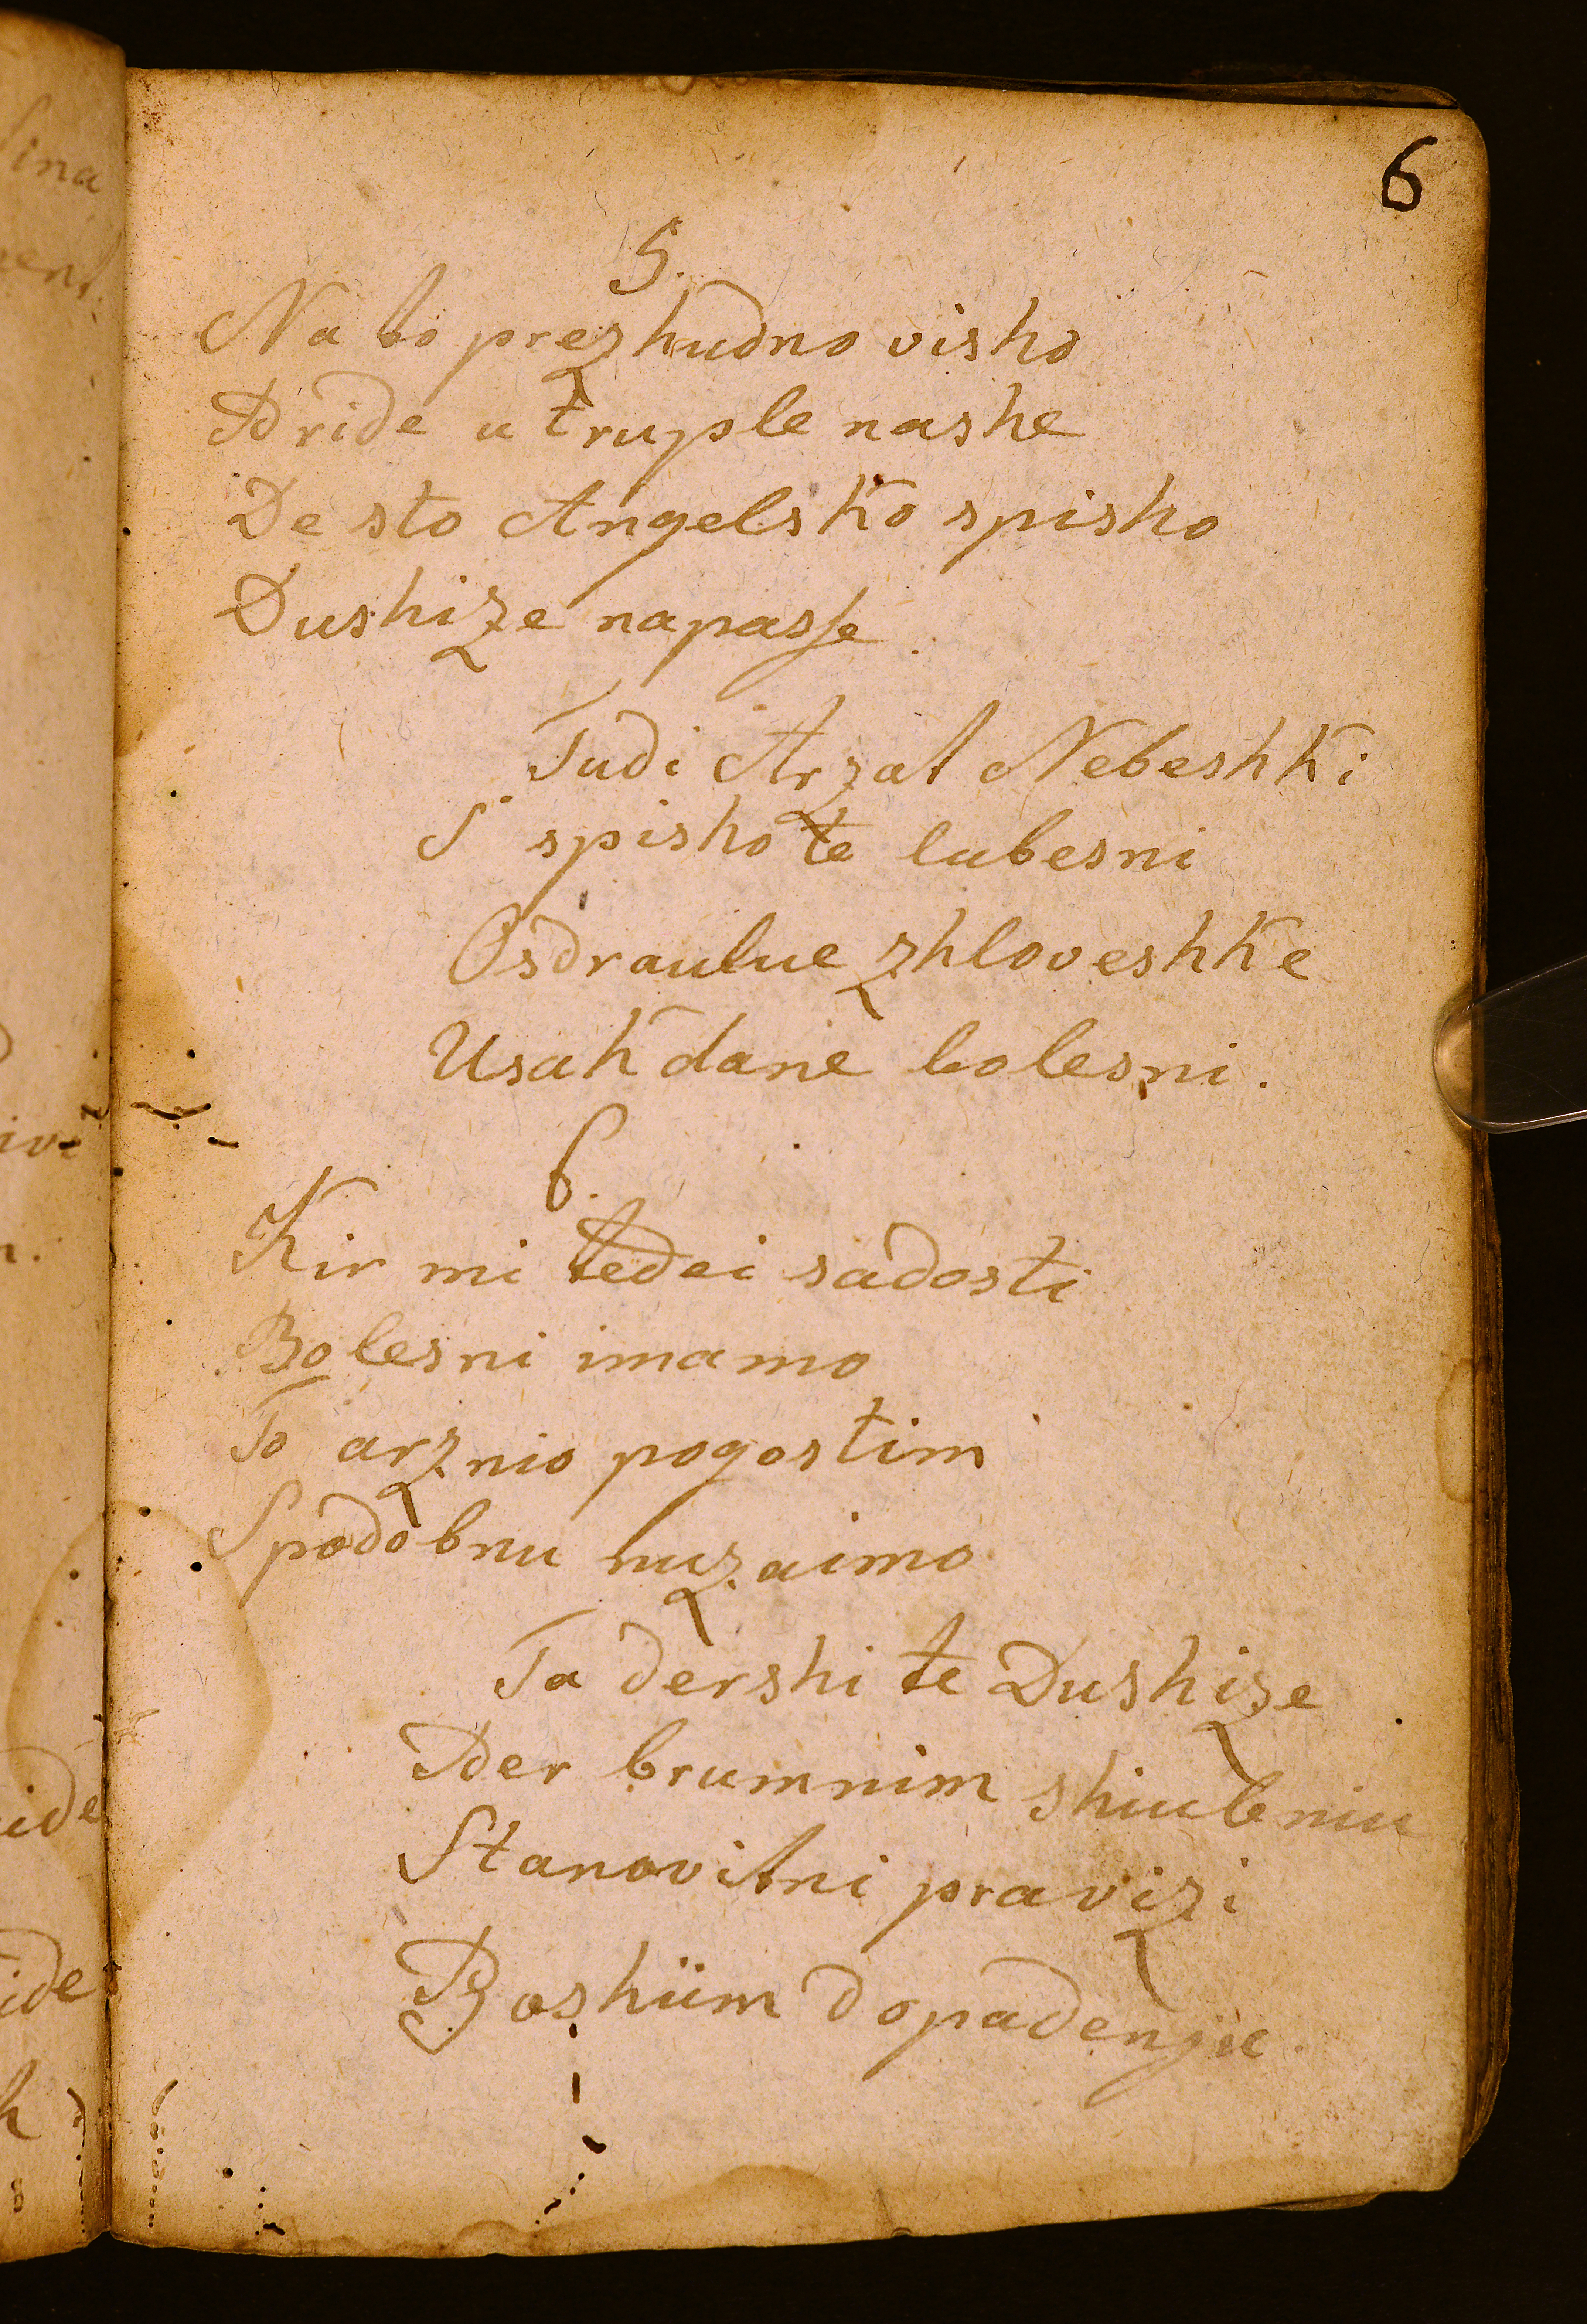 6
5.
Na to prezhudno visho
Pride u truple nashe
De sto Angelsko spisho
Dushize napasse
Tudi Arzat Nebeshki
S spisho te lubesni
Osdraulue zhloveshke
Usak dane bolesni.
6.
Kir mi tedei sadosti
Bolesni imamo
To arznio pogostim
Spodobnu nuzaimo
Ta dershi te Dushize
Per brumnim shiubniu
Stanovitni pravizi
Boshiim dopadenju.